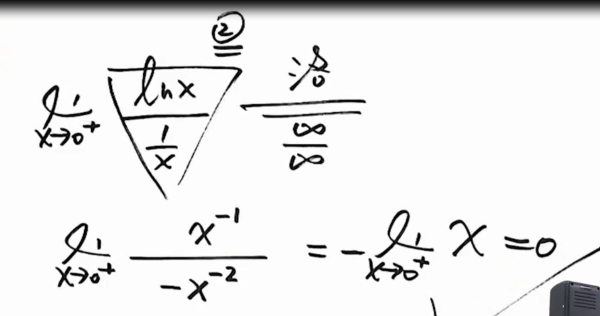 ②
lim x→0⁺ ln x / (1/x) ∞/∞
lim x→0⁺ x⁻¹ / -x⁻² = - lim x→0⁺ x = 0